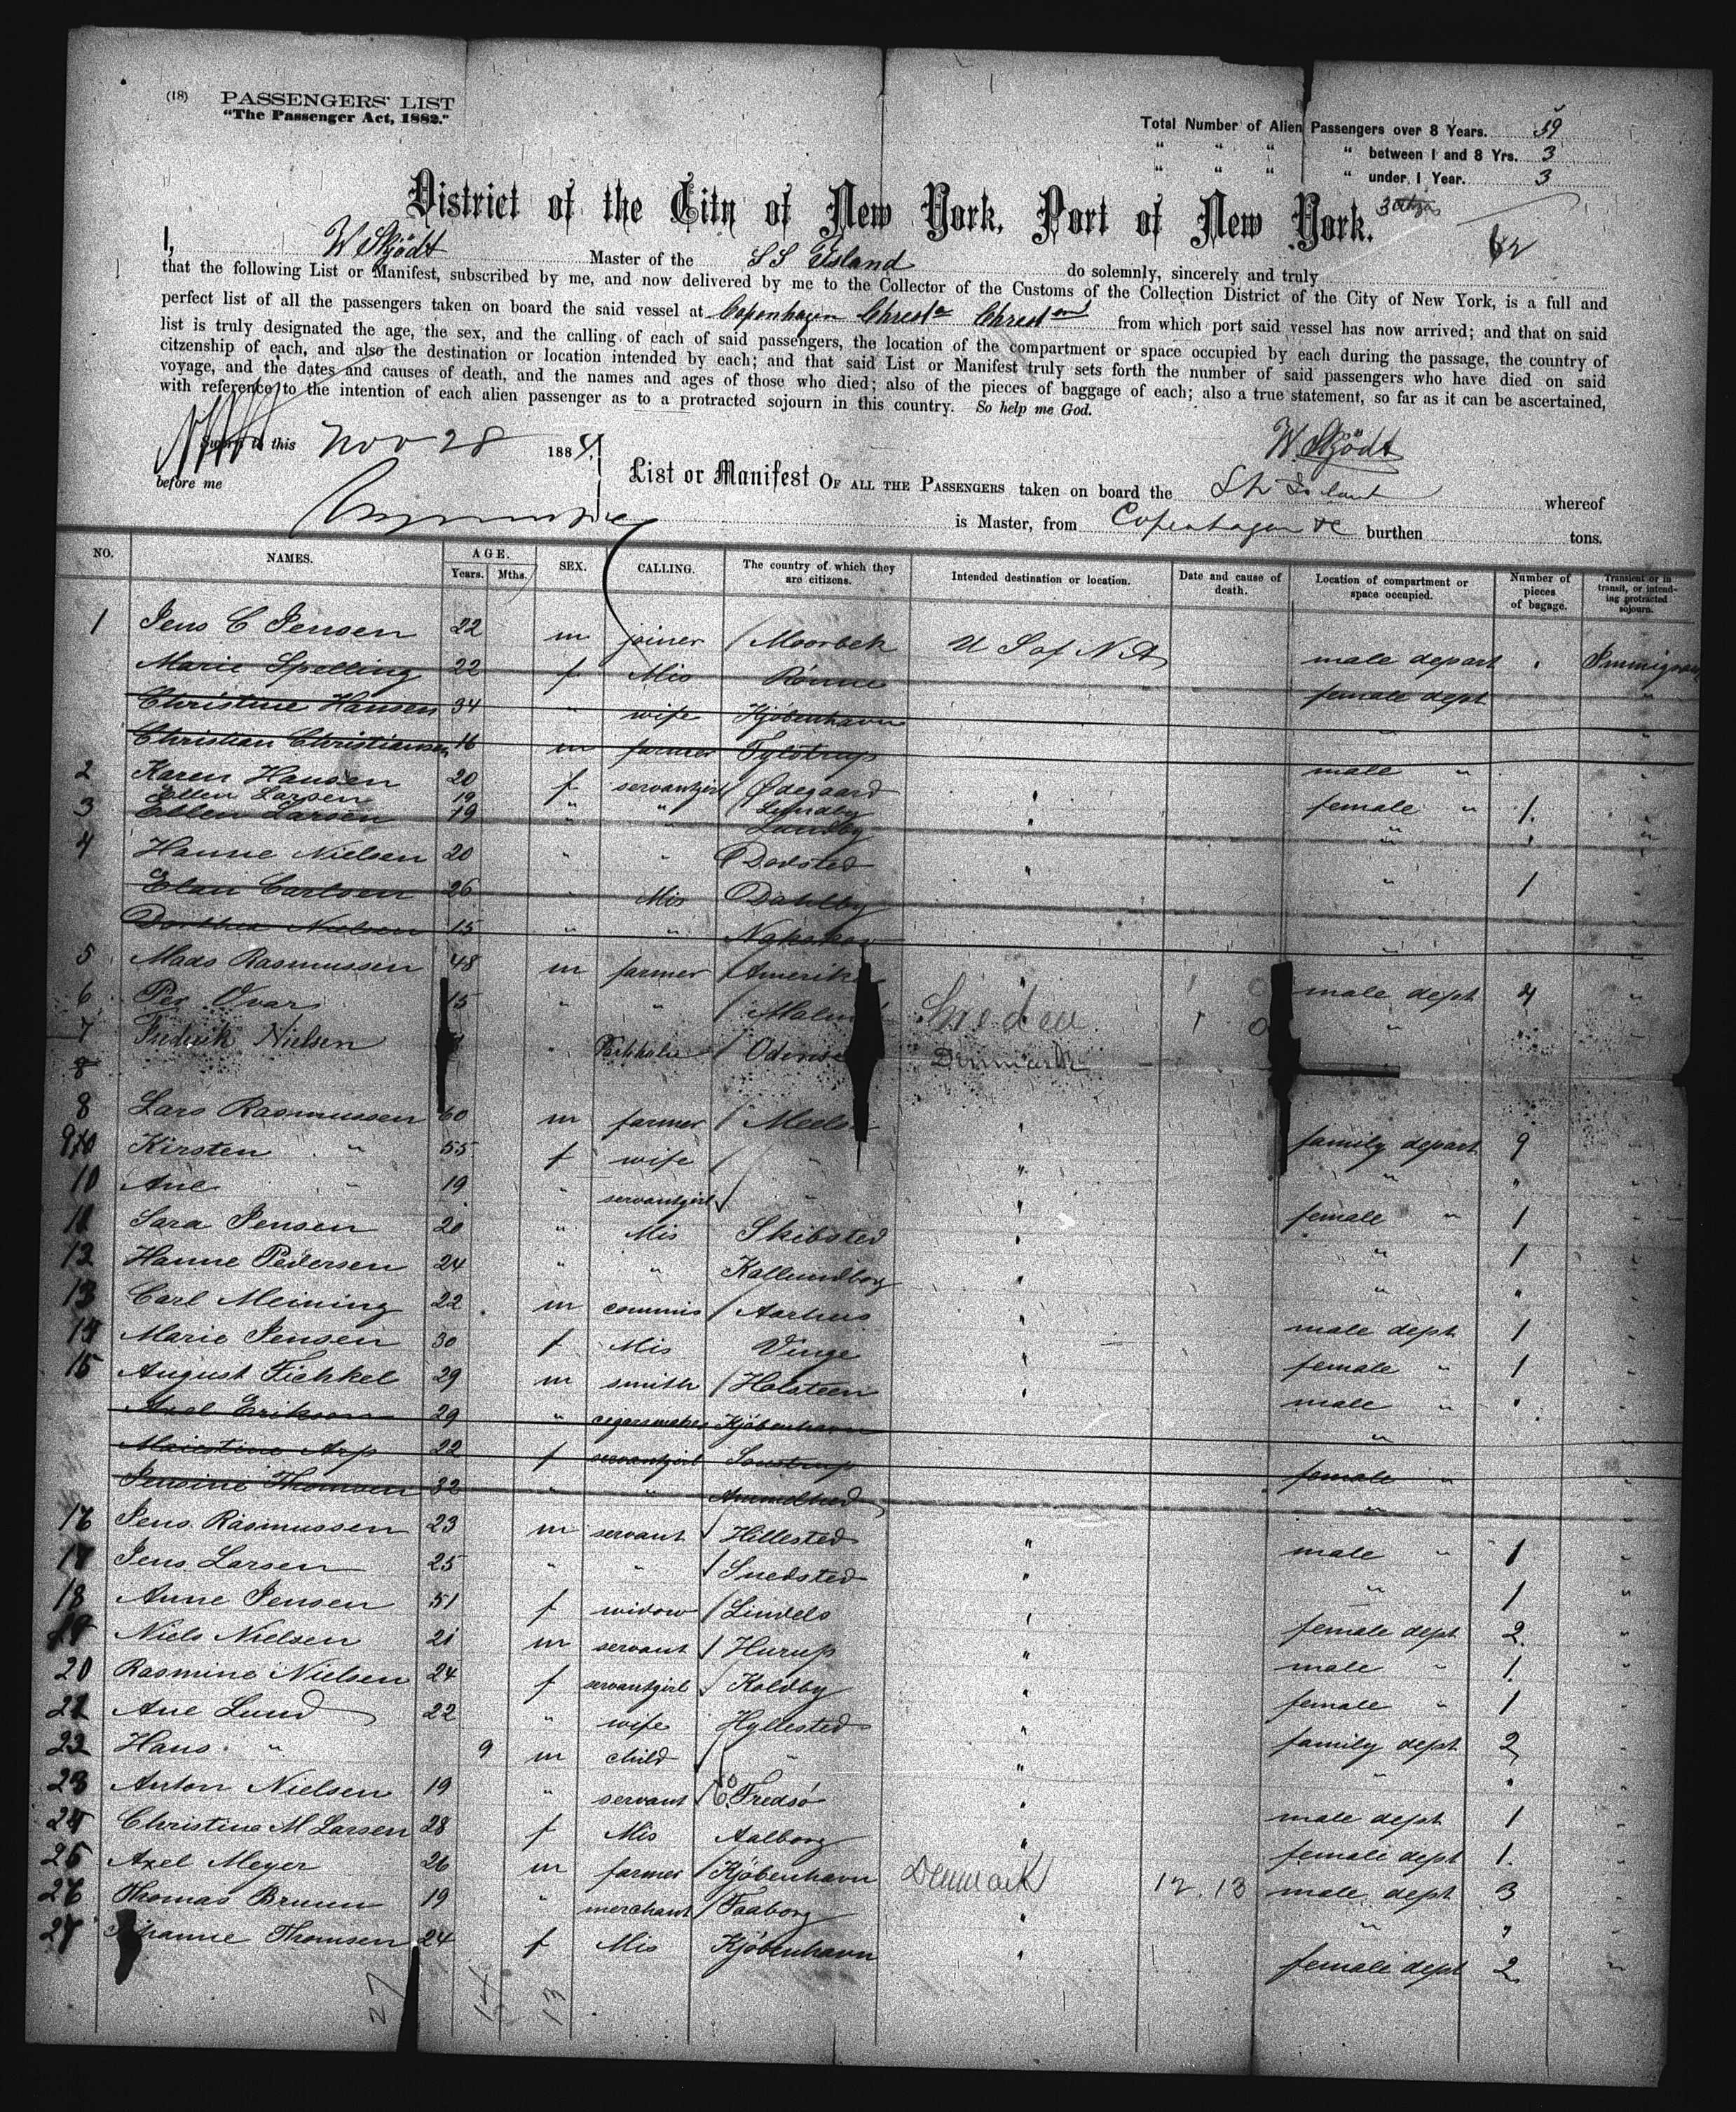 (18) PASSENGERS' LIST
"The Passenger Act, 1882."
Total Number of Alien Passengers over 8 Years. 59
" " " " between 1 and 8 Yrs. 3
" " " " under 1 Year. 3
District of the City of New York, Port of New York.
62
I, W Skjödt Master of the SS Island do solemnly, sincerely and truly
that the following List or Manifest, subscribed by me, and now delivered by me to the Collector of the Customs of the Collection District of the City of New York, is a full and
perfect list of all the passengers taken on board the said vessel at Copenhagen Christa Christand from which port said vessel has now arrived; and that on said
list is truly designated the age, the sex, and the calling of each of said passengers, the location of the compartment or space occupied by each during the passage, the country of
citzenship of each, and also the destination or location intended by each; and that said List or Manifest truly sets forth the number of said passengers who have died on said
voyage, and the dates and causes of death, and the names and ages of those who died; also of the pieces of baggage of each; also a true statement, so far as it can be ascertained,
with reference to the intention of each alien passenger as to a protracted sojourn in this country. So help me God.
Sworn to this Nov 28 1884. W. Skjödt
before me
List or Manifest OF ALL THE PASSENGERS taken on board the whereof
is Master, from Copenhagen &c burthen tons.
NO. NAMES. AGE. Years. Mths. SEX. CALLING. The country of which they are citizens. Intended destination or location. Date and cause of death. Location of compartment or space occupied. Number of pieces of bagage. Transient or in transit, or intending protracted sojourn.
1 Jens C Jensen 22 m joiner / Moorbek U S of N A male depart
Marie Spelling 22 f Mis Rönne female dept
Christine Hansen 34 " wife Kjöbenhavn "
Christian Christiansen 16 m farmer Tylstrup male "
2 Karen Hansen 20 f servantgirl / Ødegaard " female " 1.
3 Ellen Larsen 19 " " / Lundby " " "
Ellen Larsen 19 " " Lundby "
4 Hanne Nielsen 20 " " " " 1 "
Elan Carlsen 26 " Mis Dahlby "
Dorthea Nielsen 15 " " Nakskov "
5 Mads Rasmussen 48 m farmer / Amerika " male dept 4 "
6 Per 15 " " / Malmö Sweden 1 0 " "
7 Frederik Nielsen " / Odense Denmark
8
8 Lars Rasmussen 60 m farmer / " family depart 9 "
9 Kirsten " 55 f wife / " " " " "
10 Ane " 19 " servantgirl / " " female " 1 "
11 Sara Jensen 20 " Mis Skibsted " " 1 "
12 Hanne Pedersen 24 " " Kallundborg " " " "
13 Carl Meining 22 m commis / Aarhus " male dept 1 "
14 Marie Jensen 30 f Mis Vinge " female " 1 "
15 August Fichkel 29 m smith / Holsteen " male " " "
Axel Erikson 29 " cigarmaker Kjöbenhavn "
22 f servantgirl female "
Jensine Thomsen 32 " " "
16 Jens Rasmussen 23 m servant / Hillested " male " 1 "
17 Jens Larsen 25 " " / Snedsted " " 1 "
18 Anne Jensen 51 f widow / Lindels " female dept 2 "
19 Niels Nielsen 21 m servant / Hurup " male " 1 "
20 Rasmine Nielsen 24 f servantgirl / Koldby " female " 1 "
21 Ane Lund 22 " wife Hyllested " family dept 2 "
22 Hans " 9 m child / " " " " "
23 Anton Nielsen 19 " servant / Fredsö " male dept 1 "
24 Christine M Larsen 28 f Mis Aalborg " female dept 1. "
25 Axel Meyer 26 m farmer / Kjöbenhavn Denmark 12.13 male dept 3 "
26 Thomas Bruun 19 " merchant / Faaborg " " " "
27 Johanne Thomsen 24 f Mis Kjöbenhavn " female dept 2 "
27 14 13